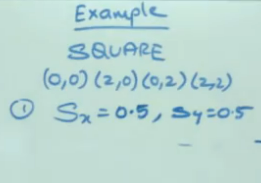 Example
SQUARE
(0,0) (2,0) (0,2) (2,2)
① Sx = 0.5, Sy = 0.5